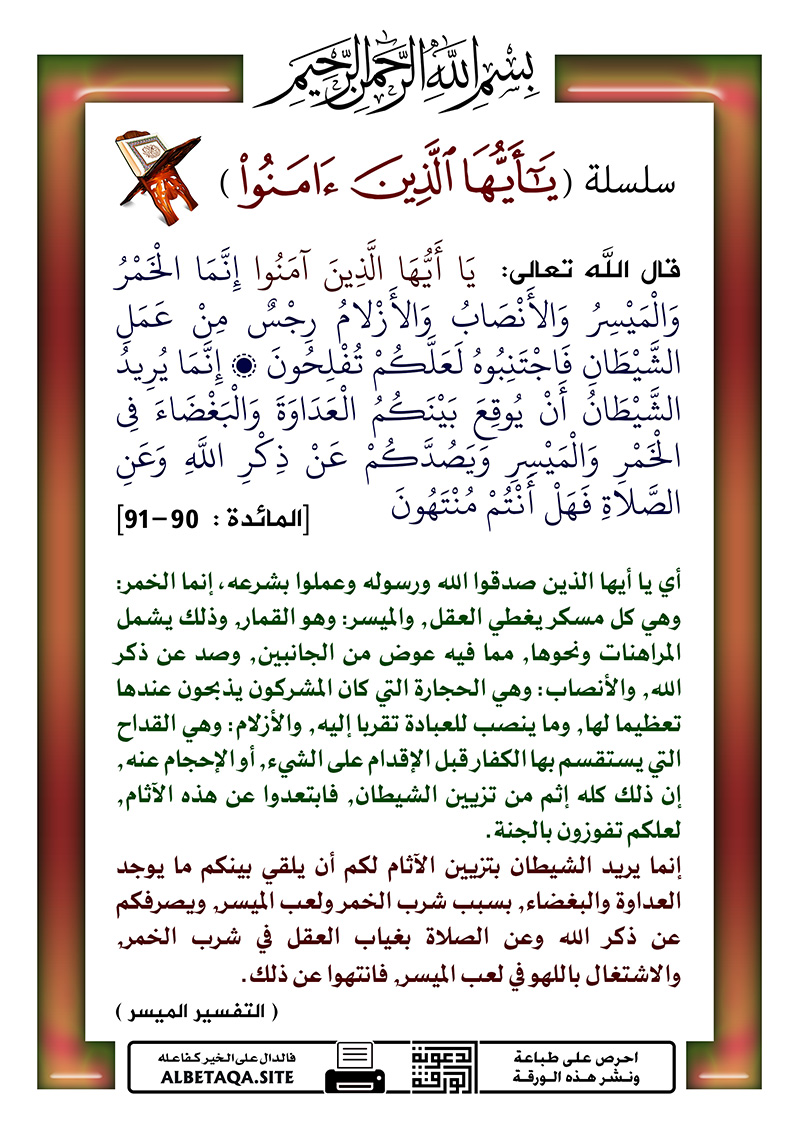 بِسْمِ اللَّهِ الرَّحْمَنِ الرَّحِيمِ
سلسلة (يَٰٓأَيُّهَا ٱلَّذِينَ ءَامَنُوا۟)
قال الله تعالى: يَا أَيُّهَا الَّذِينَ آمَنُوا إِنَّمَا الْخَمْرُ
وَالْمَيْسِرُ وَالأَنْصَابُ وَالأَزْلامُ رِجْسٌ مِنْ عَمَلِ
الشَّيْطَانِ فَاجْتَنِبُوهُ لَعَلَّكُمْ تُفْلِحُونَ ۝ إِنَّمَا يُرِيدُ
الشَّيْطَانُ أَنْ يُوقِعَ بَيْنَكُمُ الْعَدَاوَةَ وَالْبَغْضَاءَ فِي
الْخَمْرِ وَالْمَيْسِرِ وَيَصُدَّكُمْ عَنْ ذِكْرِ اللَّهِ وَعَنِ
الصَّلاةِ فَهَلْ أَنْتُمْ مُنْتَهُونَ [المائدة : 90-91]
أي يا أيها الذين صدقوا الله ورسوله وعملوا بشرعه، إنما الخمر:
وهي كل مسكر يغطي العقل, والميسر: وهو القمار, وذلك يشمل
المراهنات ونحوها, مما فيه عوض من الجانبين, وصد عن ذكر
الله, والأنصاب: وهي الحجارة التي كان المشركون يذبحون عندها
تعظيما لها, وما ينصب للعبادة تقربا إليه, والأزلام: وهي القداح
التي يستقسم بها الكفار قبل الإقدام على الشيء, أو الإحجام عنه,
إن ذلك كله إثم من تزيين الشيطان, فابتعدوا عن هذه الآثام,
لعلكم تفوزون بالجنة.
إنما يريد الشيطان بتزيين الآثام لكم أن يلقي بينكم ما يوجد
العداوة والبغضاء, بسبب شرب الخمر ولعب الميسر, ويصرفكم
عن ذكر الله وعن الصلاة بغياب العقل في شرب الخمر,
والاشتغال باللهو في لعب الميسر, فانتهوا عن ذلك.
( التفسير الميسر )
احرص على طباعة
ونشر هذه الورقة
الورقة
الدعوية
فالدال على الخير كفاعله
ALBETAQA.SITE